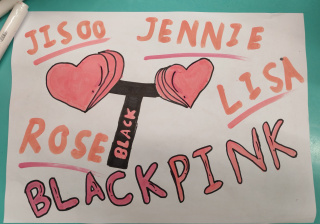 JISOO
JENNIE
LISA
ROSE
BLACK
BLACKPINK